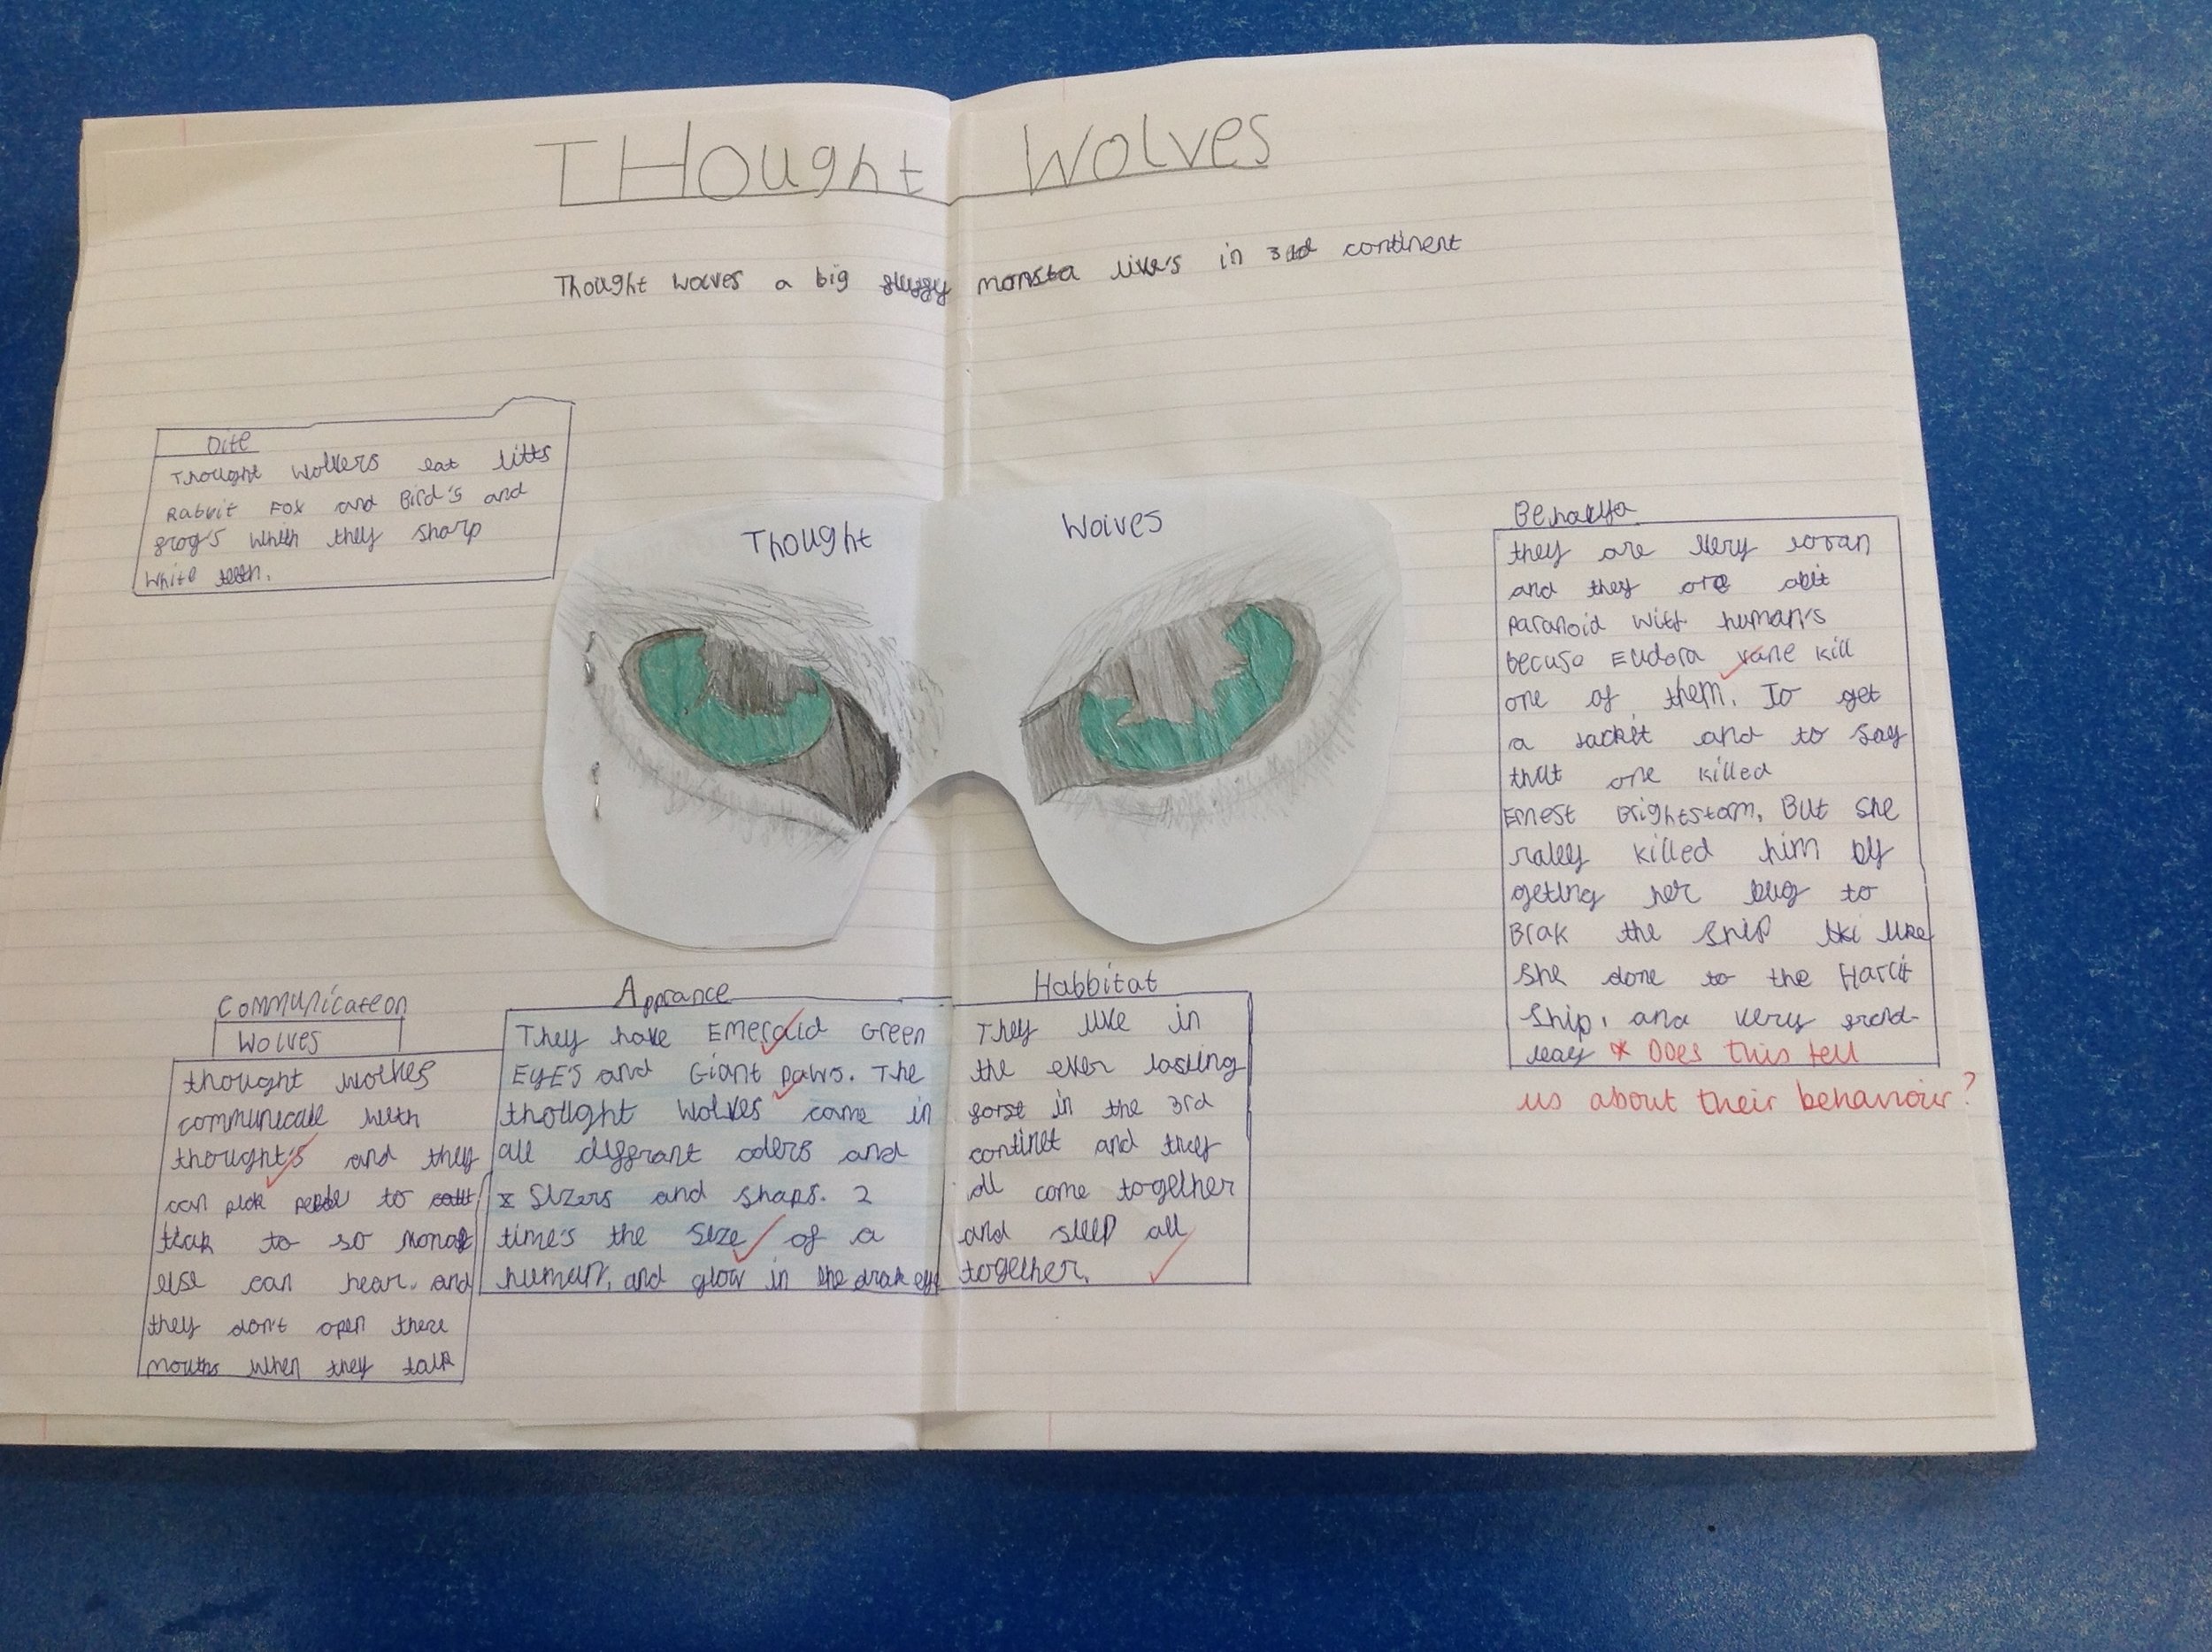 THought Wolves
Thought wolves a big monsta live's in 3rd continent
Dite
Thought Wolvers eat litts
Rabbit Fox and Bird's and
frog's whith they sharp
white teeth.
Thought Wolves
Behaviya
they are very
and they are abit
paranoid with human's
becuse Eudora vane kill
one of them. To get
a jackit and to say
that one killed
Ernest Brightstorm. But she
raley killed him by
geting her bug to
Brak the Ship like
she done to the Harcit
Ship, and very frend-
leay * Does this tell
us about their behaviour?
Communicateon
Wolves
thought wolves
communecate with
thought's and they
can pick to
tlak to so
else can hear. and
they don't open there
mouths when they talk
Apprance
They have Emerald Green
EyE's and Giant paws. The
thought Wolves come in
all diffrant colers and
Sizers and shaps. 2
time's the size of a
human, and glow in the drak eye
Habbitat
They live in
the ever lasting
forst in the 3rd
continet and they
all come together
and sleep all
together.